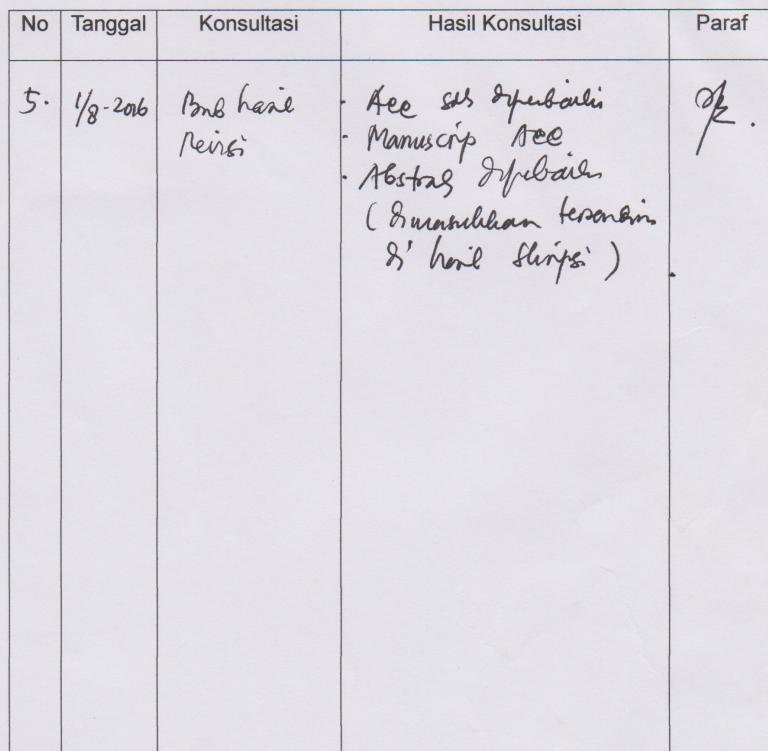 No Tanggal Konsultasi Hasil Konsultasi Paraf
5. 1/8-2016 Bab hasil - Acc sdh diperbaiki
Revisi - Manuscrip Acc
- Abstrak diperbaiki
(dimasukkan
di hasil skripsi)